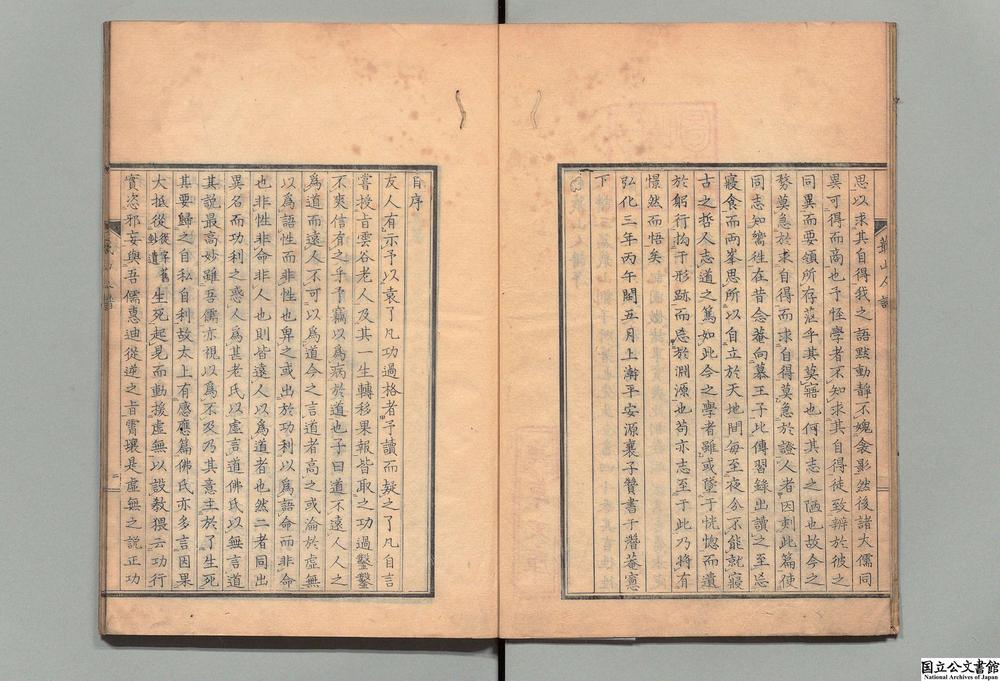 思以求其自得我之語默動靜不媿衾影然後諸大儒同
異可得而商也予怪學者不知求其自得徒致辨於彼之
同異而要領所存茫乎其莫寤也何其志之陋也故今之
務莫急於求自得而求自得莫急於證人者因刻此篇使
同志知嚮徃在昔念菴向慕王子比傳習錄出讀之至忘
寢食而兩峯思所以自立於天地間每至夜分不能就寢
古之哲人志道之篤如此今之學者雖或墮于恍惚而遺
於躬行拘于形跡而忘於淵源也苟亦志至于此乃將有
憬然而悟矣
弘化三年丙午閏五月上澣平安源襄子贊書于潛菴窻
下
蕺山人譜
自序
友人有示予以袁了凡功過格者予讀而疑之了凡自言
嘗授旨雲谷老人及其一生轉移果報皆取之功過鑿鑿
不爽信有之乎予竊以為病於道也子曰道不遠人人之
為道而遠人不可以為道今之言道者高之或淪於虛無
以為語性而非性也卑之或出於功利以為語命而非命
也非性非命非人也則皆遠人以為道者也然二者同出
異名而功利之惑人為甚老氏以虛言道佛氏以無言道
其說最高妙雖吾儒亦視以為不及乃其意主於了生死
其要歸之自私自利故太上有感應篇佛氏亦多言因果
大抵從生死起見而動援虛無以設教猥云功行
實恣邪妄與吾儒惠迪從逆之旨霄壤是虛無之說正功
国立公文書館
National Archives of Japan